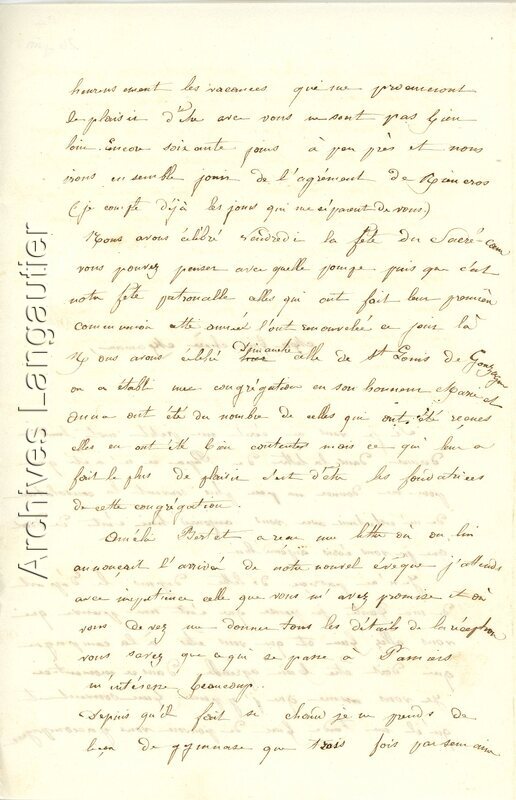 heureusement les vacances qui me procureront
le plaisir d'être avec vous ne sont pas bien
loin. Encore soixante jours à peu près et nous
irons ensemble jouir de l'agrément de Rieucros
(je compte déjà les jours qui me séparent de vous)
Nous avons célébré vendredi la fête du Sacré-Cœur
vous pouvez penser avec quelle pompe puis que c'est
notre fête patronalle celles qui ont fait leur première
communion cette année l'ont renouvelée ce jour là
Nous avons célébré Dimanche celle de St Louis de Gonzague
on a établi une congrégation en son honneur Marie et
Anna ont été du nombre de celles qui ont été reçues
elles en ont été bien contentes mais ce qui leur a
fait le plus de plaisir c'est d'être les fondatrices
de cette congrégation.
Amélie Bertet a reçu une lettre où on lui
annonçait l'arrivée de notre nouvel évêque j'attends
avec impatience celle que vous m'avez promise et où
vous devez me donner tous les détails de la réception
vous savez que ce qui se passe à Pamiers
m'intéresse beaucoup.
Depuis qu'il fait si chaud je ne prends de
leçon de gymnase que trois fois par semaine
Archives Langautier